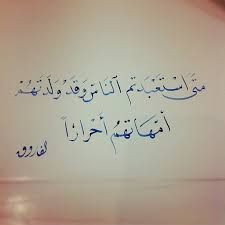 متَى اسْتَعْبَدتم النَّاسَ وَقَدْ وَلَدَتْهُمْ
أمَّهَاتهُمْ أحْرَاراً
الفاروق